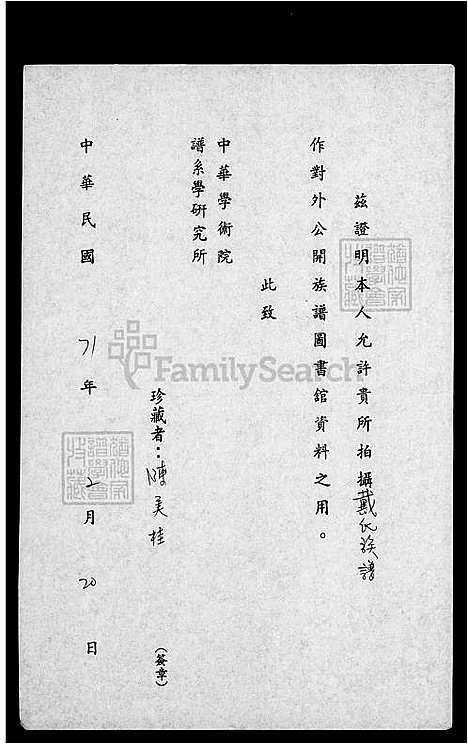 茲證明本人允許貴所拍攝戴氏族譜
作對外公開族譜圖書館資料之用。
此致
中華學術院
譜系學研究所
珍藏者：陳美桂
（簽章）
中華民國 71年 2月 20日
FamilySearch